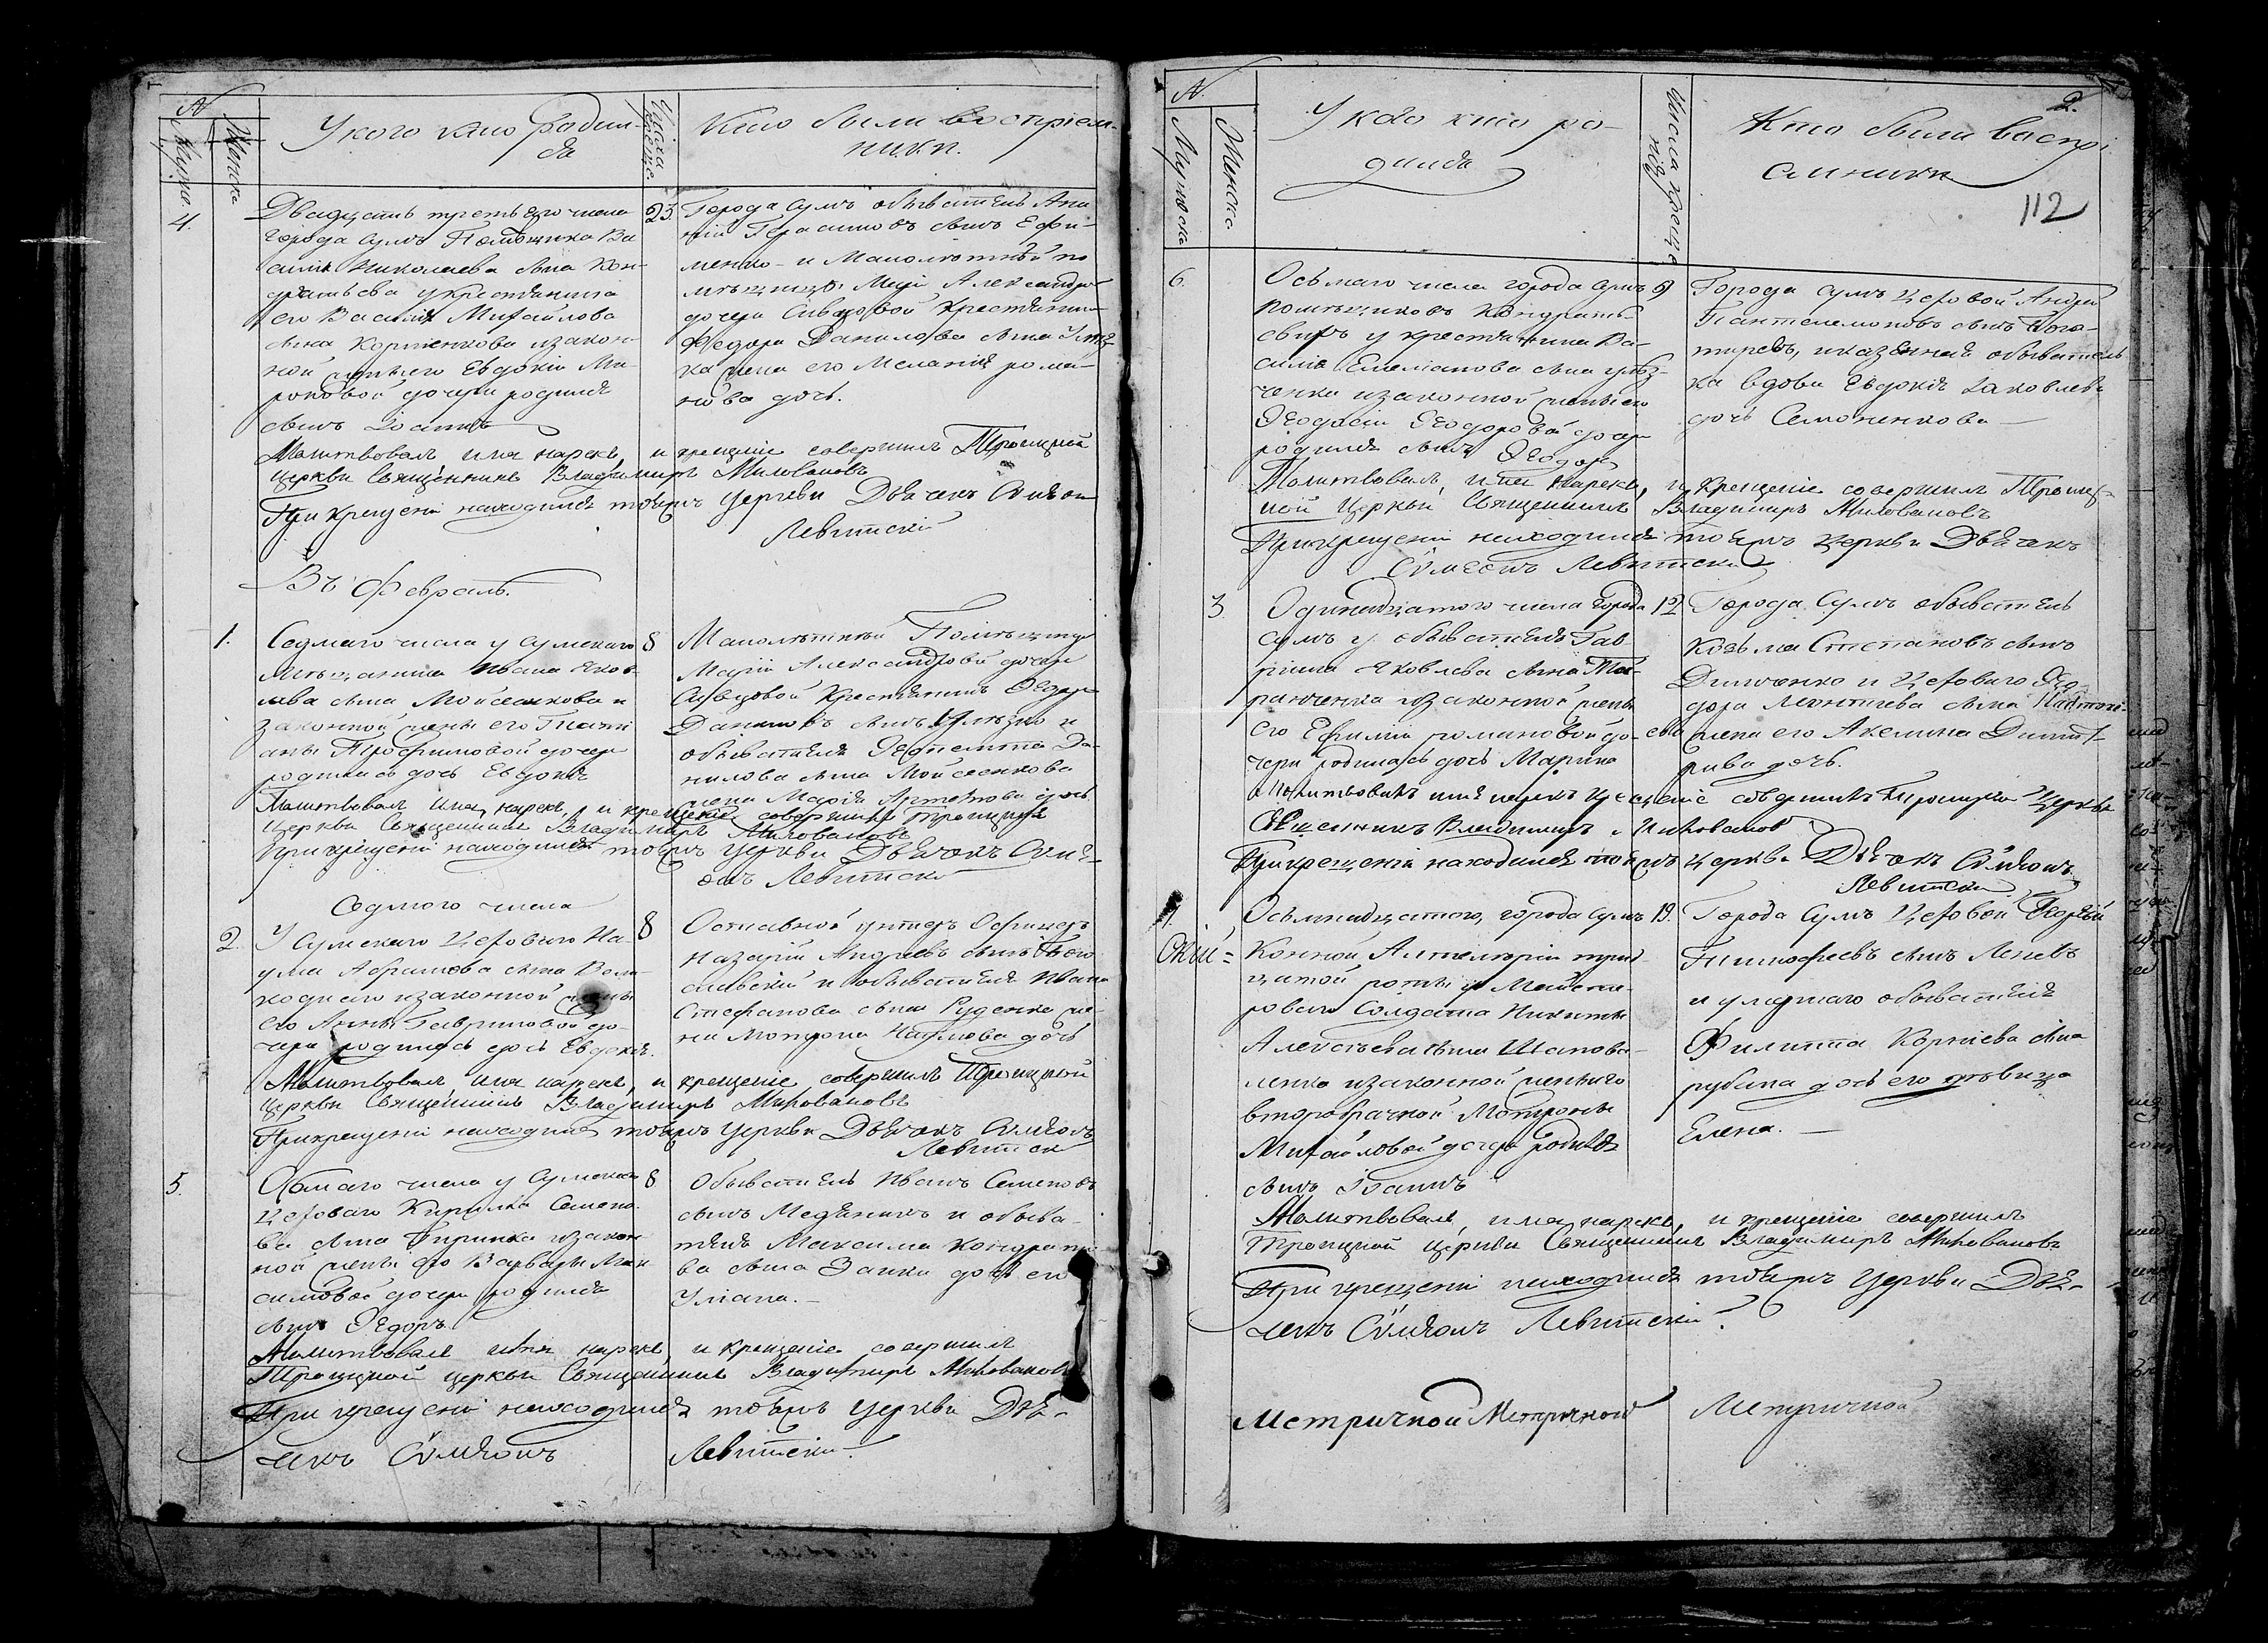 N
Мужска
Женска
У кого кто родил-
ся
Числа крещ.
Кто были воспріем-
ники.
4.
Двадцать третьяго числа
города Сумъ Помѣщика Ва
силія Николаева сына Кон-
дратьева у крестьянина
его Василія Михайлова
сына Корниенкова и закон-
ной жены его Евдокіи Ми-
роновой дочери родился
сынъ
23.
Города Сумъ обыватель
Герасимовъ сынъ Ефи-
менко и Малолѣтней по
мѣщицы Маріи Александро-
дочери Савичовой крестьянин
Федора Данилова сына
жена его Меланія рома-
нова дочь.
Молитвовалъ имя нарекъ, и крещеніе совершилъ Троицкой
церкви Священникъ Владимиръ Миловановъ
При крещеніи находился тояжъ церкви Дьячекъ Сѵмеон
Левитскій
Въ Февралѣ.
1.
Седмаго числа у Сумскаго
мѣщанина Ивана Яков-
лева сына Мойсеенкова и
законной жены его Тати
аны Трофимовой дочери
родилась дочь Евдокія
8
Малолѣтней Помѣщицы
Маріи Александровой дочери
Савичовой Крестьянинъ Федоръ
Даниловъ сынъ и
обывателя Филиппа Да-
нилова сына Мойсеенкова
жена Марія Артемова дочь
Молитвовалъ имя нарекъ, и крещеніе совершилъ Троицкой
Церкви Священникъ Владимиръ Миловановъ
При крещеніи находился тояжъ Церкви Дьячекъ Сѵме-
онъ Левитскі
Седмого числа
2
У Сумскаго Цеховаго На-
ума Абрамова сына
и законной жены
его Анны Гавриловой до-
чери родилась дочь Евдокія.
8
Отставной унтеръ Офицеръ
Назарій Андреевъ сынъ
и обывателя Ивана
Стефанова сына Руденка же-
на Мотрона Наумова дочь
Молитвовалъ, имя нарекъ, и крещеніе совершилъ Троицкой
Церкви Священникъ Владимиръ Миловановъ
При крещеніи находился тояжъ Церкви Дьячекъ Сѵмеонъ
Левитскі
5.
Осмаго числа у Сумскаго
Цеховаго Кирилла Семено-
ва сына и закон-
ной жены его Варвары Мак
симовой дочери родился
сынъ Федоръ
8
Обыватель Иванъ Семеновъ
сынъ Медяникъ и обыва-
теля Максима Кондрать
ва сына Заики дочь его
Уліана.
Молитвовалъ имя нарекъ, и крещеніе совершилъ
Троицкой церкви Священникъ Владимиръ Миловановъ
При крещеніи находился тояжъ церкви Дья-
чекъ Сѵмеонъ Левитскій
N.
Мужска
Женска
У кого кто ро-
дился
Числа крещенія
Кто были воспрі
емники
2.
112
6.
Осьмаго числа города Сумъ
помѣщиковъ Кондрать-
евыхъ у крестьянина Ва-
силія Емелианова сына
и законной жены его
Феодосіи Феодоровой дочери
родился сынъ Феодоръ
9
Города Сумъ Цеховой Андрей
Пантелемоновъ сынъ Бога-
тыревъ, и казенная обыватель
ка вдова Евдокія Яковлева
дочь Семоненкова
Молитвовалъ, имя нарекъ, и крещеніе совершилъ Троиц-
кой церкви Священникъ Владимиръ Миловановъ
При крещеніи находился тояжъ церкви Дьячекъ
Сѵмеонъ Левитскій
3
Одинадцатого числа города
Сумъ у обывателя Гав
риила Яковлева сына
и законной жены
его Ефиміи романовой до-
чери родилась дочь Марина
12
Города Сумъ обыватель
Козьма Степановъ сынъ
Димченко и Цеховаго Фео-
дора Леонтиева сына
жена его Акелина Димит-
риева дочь.
Молитвовалъ имя нарекъ крещеніе совершилъ Троицкой Церкви
Священникъ Владимиръ Миловановъ
При крещеніи находился тояжъ церкви Дьячекъ Сѵмеонъ
Левитскі
Осьмнадцатого, города Сумъ
Конной Артилеріи трид-
цатой роты у
Солдата Никиты
Алексѣева сына Шапова-
ленко и законной жены его
второбрачной Мотроны
Михайловой дочери родился
сынъ Іоаннъ
19.
Города Сумъ Цеховой Георгій
Тимофеевъ сынъ
и умершаго обывателя
Филиппа Корніева сына
рубана дочь его дѣвица
Елена.
Молитвовалъ, имя нарекъ, и крещеніе совершилъ
Троицкой церкви Священникъ Владимиръ Миловановъ
При крещеніи находился тояжъ Церкви Дья-
чекъ Сѵмеонъ Левитскій
Метричной Метричной Метричной